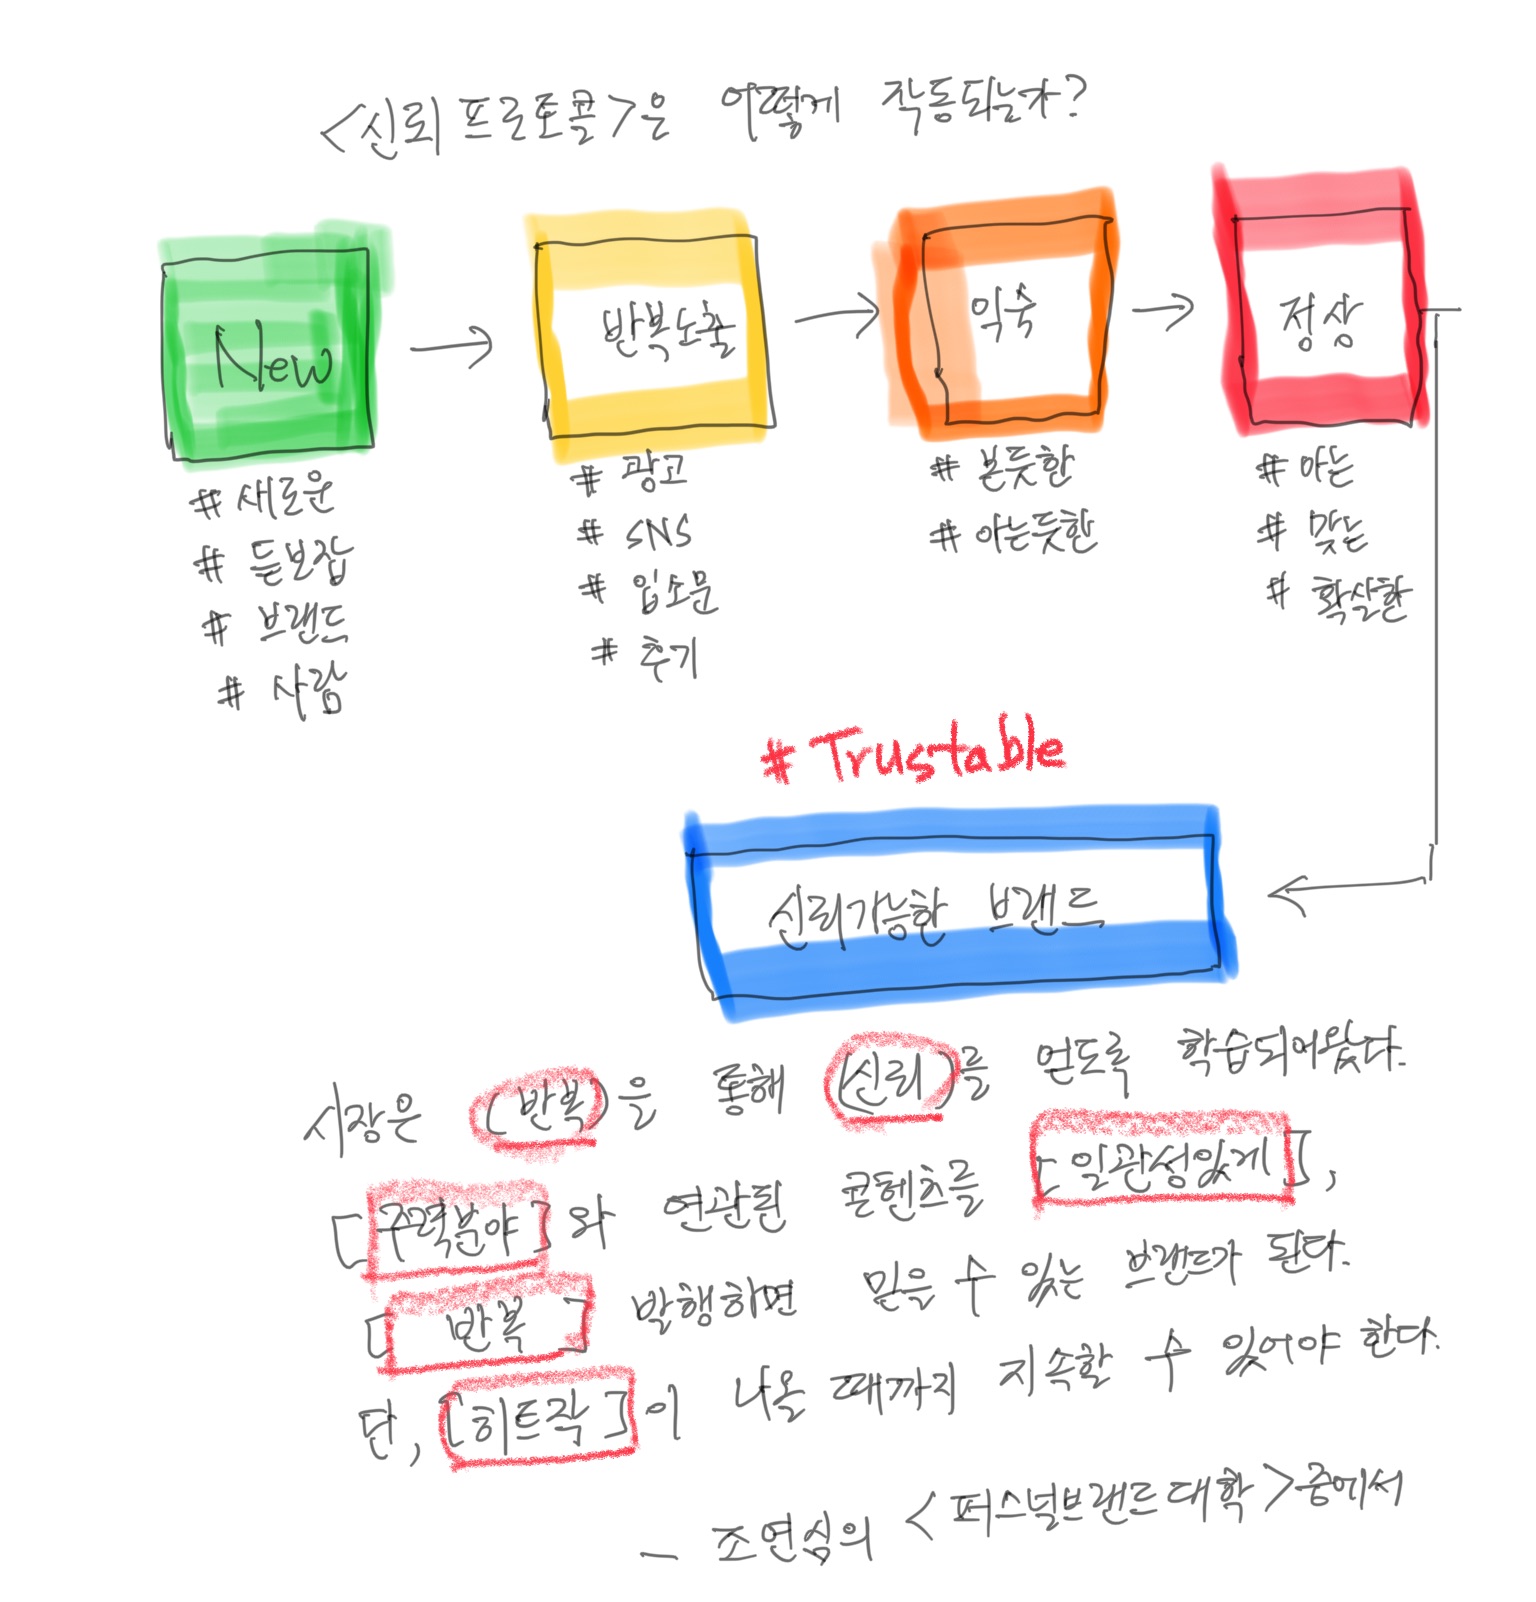 <신뢰프로토콜>은 어떻게 작동되는가?
New
반복노출
익숙
정상
# 새로운
# 듣보잡
# 브랜드
# 사람
# 광고
# SNS
# 입소문
# 후기
# 본듯한
# 아는듯한
# 아는
# 맞는
# 확실한
# Trustable
신뢰가능한 브랜드
시장은 (반복)을 통해 (신뢰)를 얻도록 학습되어왔다.
[주력분야]와 연관된 콘텐츠를 [일관성있게],
[반복] 발행하면 믿을 수 있는 브랜드가 된다.
단, [히트작]이 나올 때까지 지속할 수 있어야 한다.
- 조연심의 <퍼스널브랜드대학>중에서